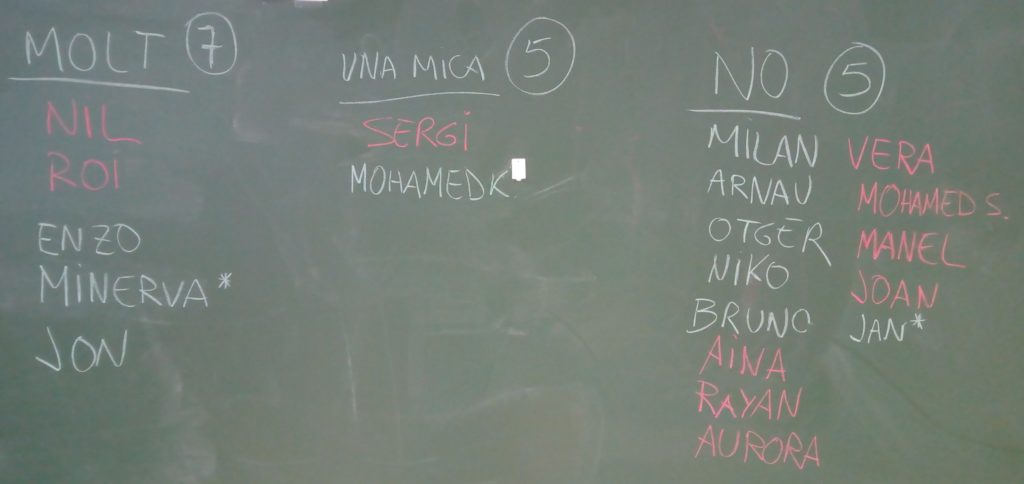 MOLT 7
NIL
ROI
ENZO
MINERVA*
JON
UNA MICA 5
SERGI
MOHAMED K
NO 5
MILAN
ARNAU
OTGER
NIKO
BRUNO
AINA
RAYAN
AURORA
VERA
MOHAMED S.
MANEL
JOAN
JAN*